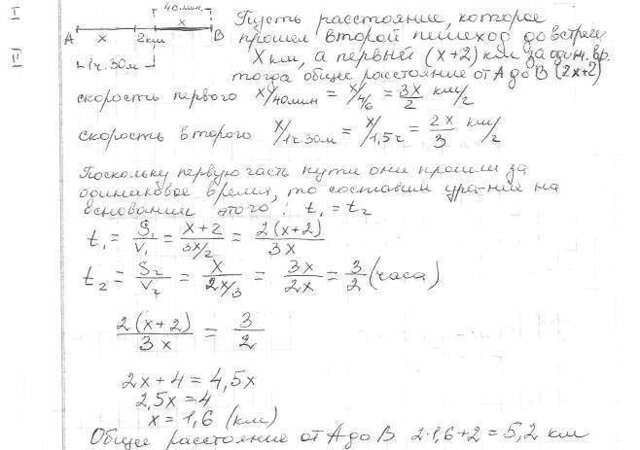 I
II
40мин.
x
A x 2км B
1ч.30м
Пусть расстояние, которое
прошел второй пешеход до встречи
X км, а первый (x+2) км за один. вр.
тогда общее расстояние от A до B (2x+2)
скорость первого x/40мин = x/4/6 = 3x/2 км/ч
скорость второго x/1ч 30м = x/1,5ч = 2x/3 км/ч
Поскольку первую часть пути они прошли за
одинаковое время, то составим ура-ние на
основании этого: t₁ = t₂
t₁ = S₁/V₁ = x+2/3x/2 = 2(x+2)/3x
t₂ = S₂/V₂ = x/2x/3 = 3x/2x = 3/2 (часа)
2(x+2)/3x = 3/2
2x + 4 = 4,5x
2,5x = 4
x = 1,6 (км)
Общее расстояние от A до B 2·1,6+2 = 5,2 км